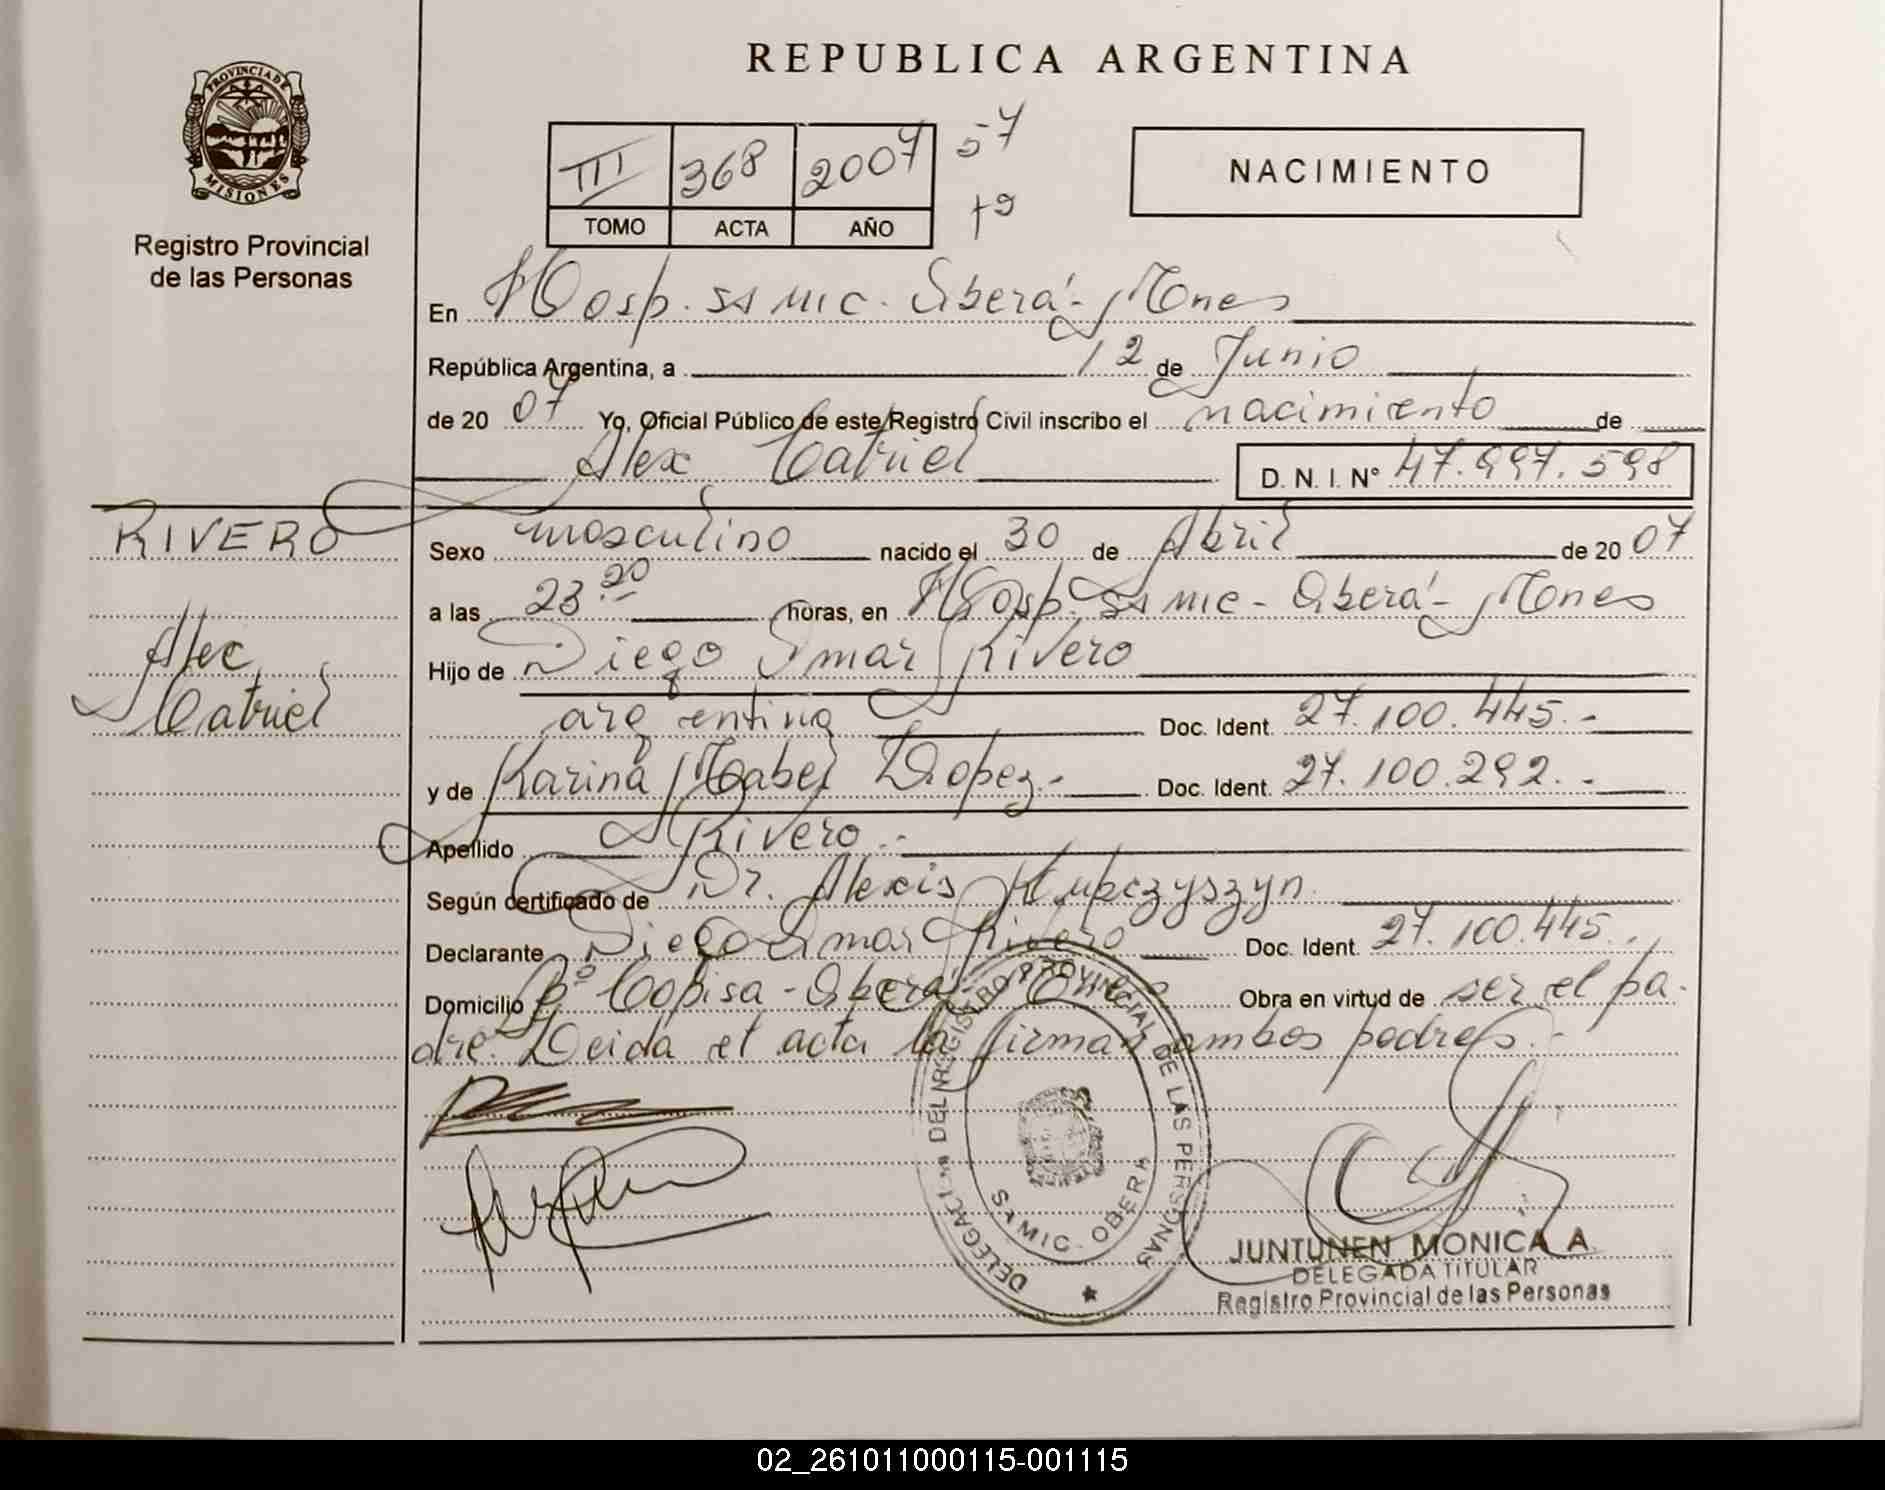 REPUBLICA ARGENTINA
PROVINCIA DE
MISIONES
Registro Provincial
de las Personas
III 368 2007 57
TOMO ACTA AÑO
NACIMIENTO
En Hosp. SAMIC. Oberá - Mones
República Argentina, a 12 de Junio
de 2007 Yo, Oficial Público de este Registro Civil inscribo el nacimiento de
Alex Catriel D. N. I. N° 47.997.598
RIVERO
Alex
Catriel
Sexo masculino nacido el 30 de Abril de 2007
a las 23 20 horas, en Hosp. SAMIC - Oberá - Mones
Hijo de Diego Omar Rivero
argentina Doc. Ident. 27.100.445.-
y de Karina Mabel Lopez.- Doc. Ident. 27.100.292.-
Apellido Rivero.-
Según certificado de Dr. Alexis Kupczyszyn
Declarante Diego Omar Rivero Doc. Ident. 27.100.445.
Domicilio Bº Copisa - Oberá - Mones Obra en virtud de ser el pa-
dre. Leida el acta la firman ambos padres.-
DELEGACION DEL REGISTRO PROVINCIAL DE LAS PERSONAS
SAMIC - OBERA
JUNTUNEN MONICA A.
DELEGADA TITULAR
Registro Provincial de las Personas
02_261011000115-001115